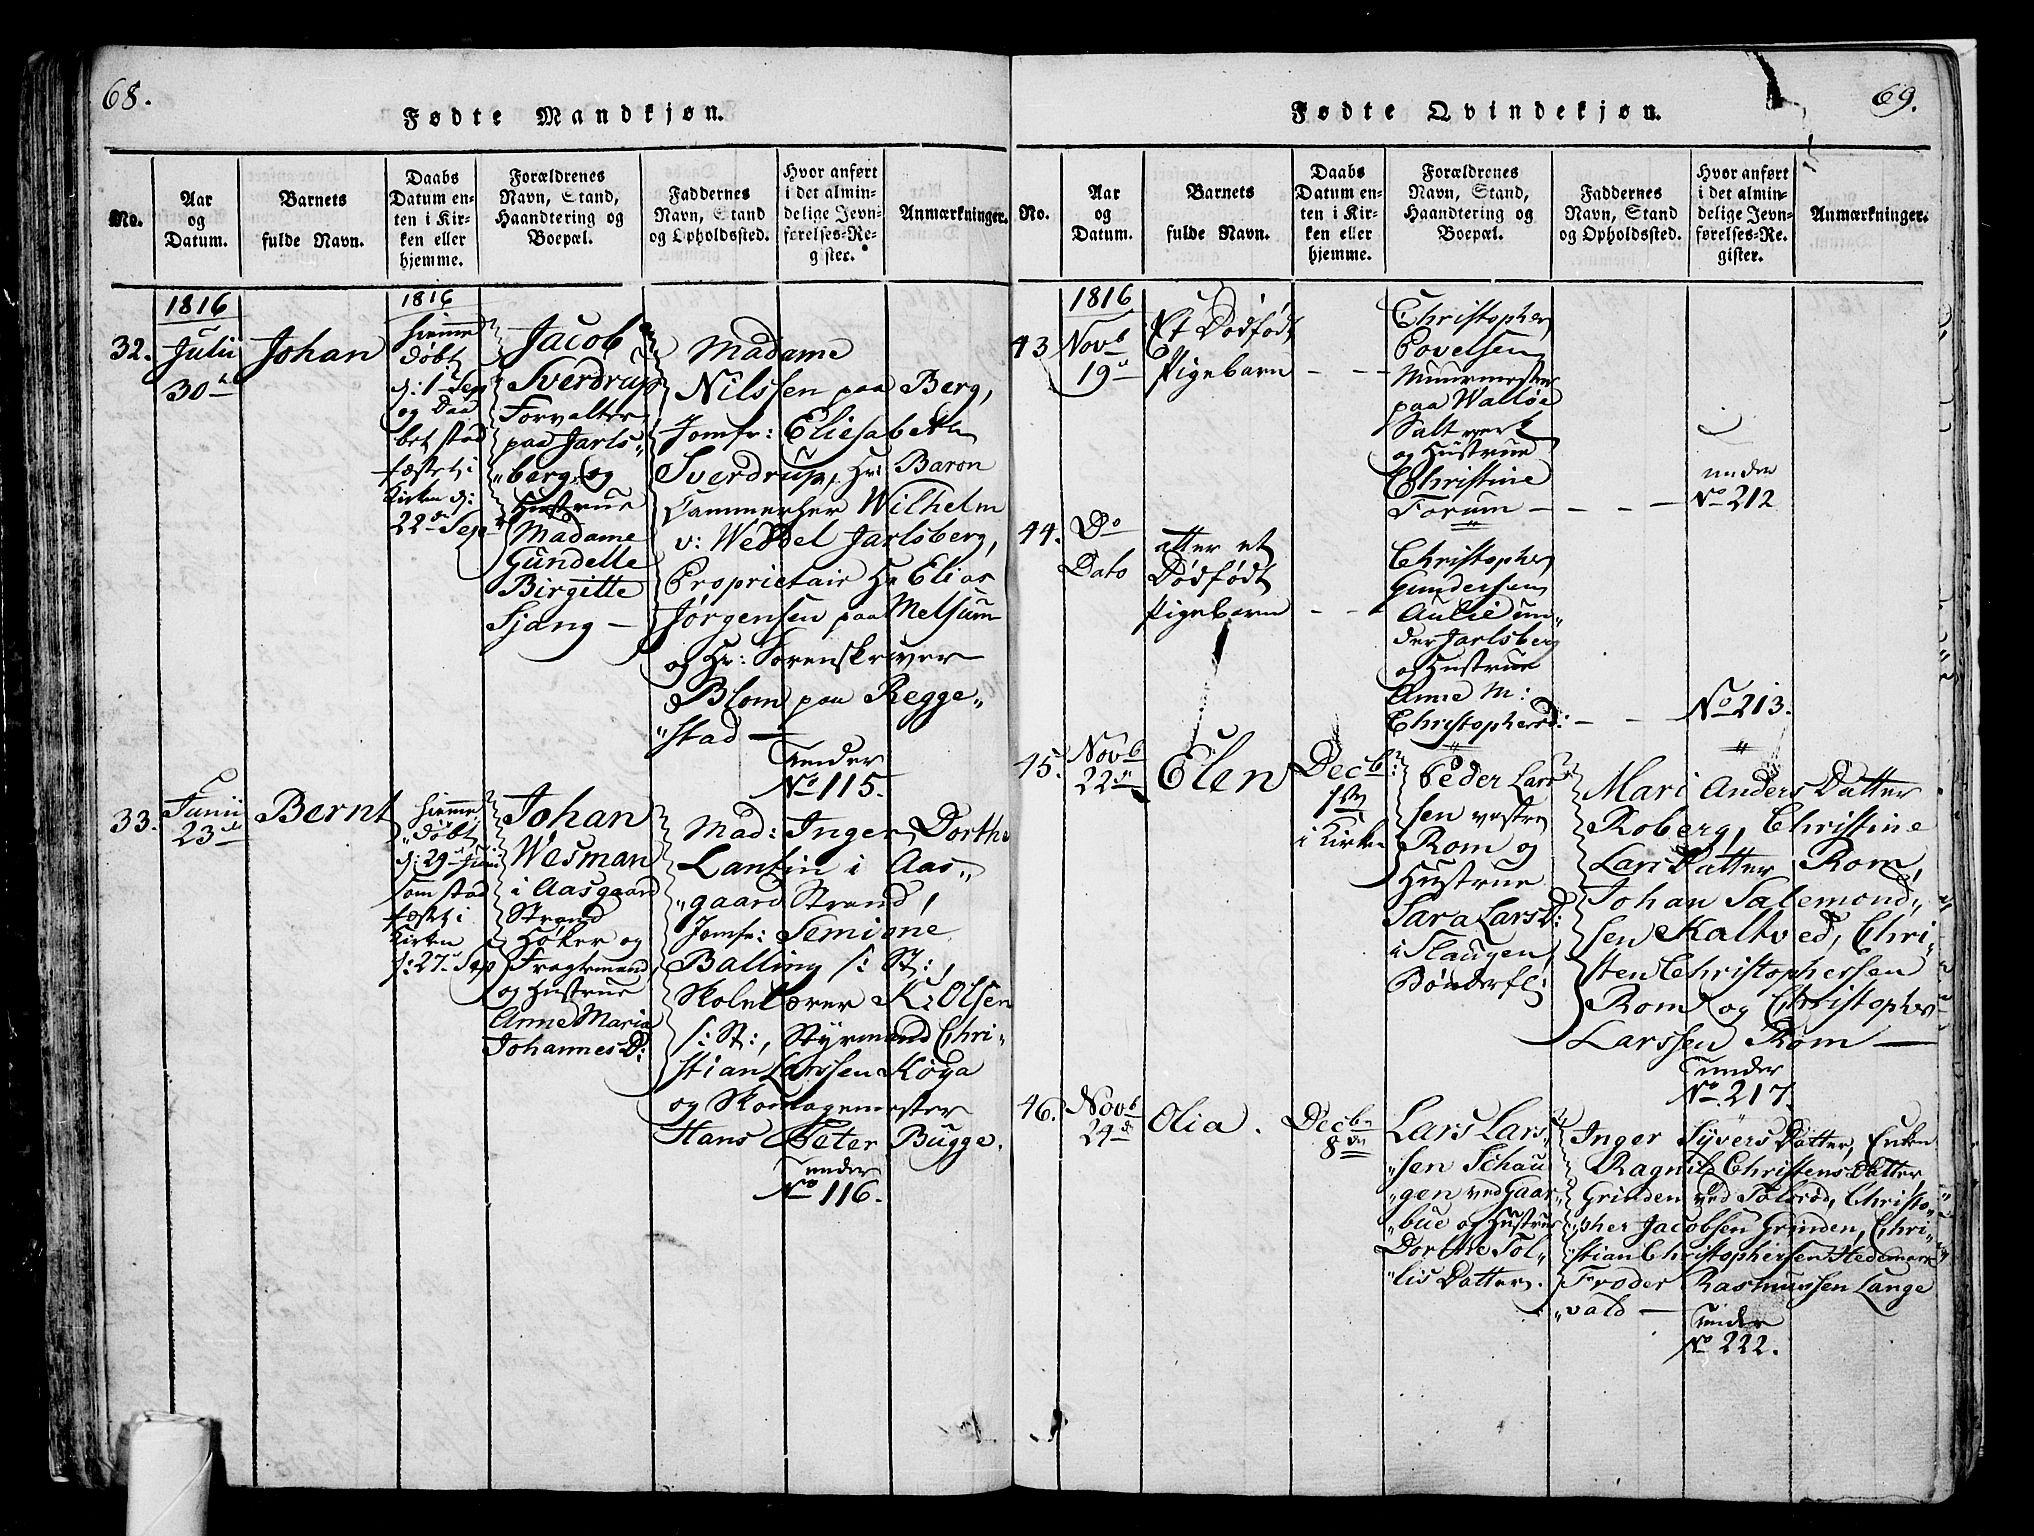 68.
Fødte Mandkjøn.
No.
Aar
og
Datum.
Barnets
fulde Navn.
Daabs
Datum en-
ten i Kir-
ken eller
hjemme.
Forældrenes
Navn, Stand,
Haandtering og
Boepæl.
Faddernes
Navn, Stand
og Opholdssted.
Hvor anført
i det almin-
delige Jevn-
førelses-Re-
gister.
Anmærkninger.
32.
1816
Julii
30te
Johan
1816
hiemme
døbt
d: 1 Sep
og Daa
bet stad
fæstet i
Kirken d:
22de Sept
Jacob
Sverdrup
Forvalter
paa Jarls-
berg og
Hustrue
Madame
Gundelle
Birgitte
Siang —
Madame
Nilssen paa Berg,
Jomfr: Eliesabeth
Sverdrup, Hr: Baron
Cammerher Wilhelm
v: Weddel Jarlsberg,
Proprietair Hr Elias
Jørgensen paa Melsum
og Hr: Sorenskriver
Blom paa Regge-
stad —
under
No 115.
33.
Junii
23de
Bernt
hiemme
døbt
d: 29 Juni
som stad
fæstet i
Kirken
d: 27 Sep
Johan
Wesman
i Aasgaard
Strand
Høker og
Fragtmand
og Hustrue
Anne Maria
Johannes D:
Mad: Inger Dorthe
Lantin i Aas-
gaard Strand,
Jomfr: Semione
Balling s: St:,
Skolelærer K: Olsen
s: St:, Styrmand Chri-
stian Larssen Køya
og
Hans Peter Bugge.
under
No 116.
69.
Fødte Qvindekjøn.
No.
Aar
og
Datum.
Barnets
fulde Navn.
Daabs
Datum en-
ten i Kir-
ken eller
hjemme.
Forældrenes
Navn, Stand,
Haandtering og
Boepæl.
Faddernes
Navn, Stand
og Opholdssted.
Hvor anført
i det almin-
delige Jevn-
førelses-Re-
gister.
Anmærkninger.
43
1816
Novb
19de
Et Dødfødt
Pigebarn
Christopher
Povelsen
Muurmester
paa Walløe
Saltverk
og Hustrue
Christine
Forum
under
No 212
44.
Do
Dato
atter et
Dødfødt
Pigebarn
Christopher
Gundersen
Aulie un-
der Jarlsberg
og Hustrue
Anne M:
Christophersd:
No 213.
45.
Novb
22de
Elen
Decb:
1ste
i Kirken
Peder Lars
sen vestre
Rom og
Hustrue
Sara Lars D:
i Slaugen
Bønderf:
Mari Anders Datter
Roberg, Christine
Lars Datter Rom,
Johan Salemond-
sen Kaltved, Chri-
sten Christophersen
Rom og Christopher
Larssen Rom —
under
No 217.
46.
Novb
24de
Olia.
Decbr
8de
Lars Lars-
sen Schau
gen ved Gaar-
bue og Hustrue
Dorthe Tol-
lis Datter.
Inger Syvers Datter, Enken
Ragnild Christens Datter,
Grinden ved Tolsrød, Christo-
pher Jacobsen Grinden, Chri-
stian Christophersen Hedemark
Froder Rasmussen Lange
vald —
under
No 222.